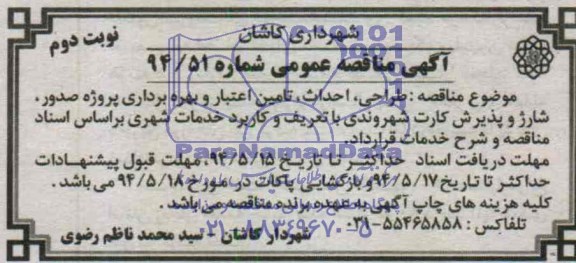 شهرداری کاشان
نوبت دوم
آگهی مناقصه عمومی شماره ۹۴/۵۱
موضوع مناقصه : طراحی، احداث، تامین اعتبار و بهره برداری پروژه صدور،
شارژ و پذیرش کارت شهروندی با تعریف و کاربرد خدمات شهری براساس اسناد
مناقصه و شرح خدمات قرارداد.
مهلت دریافت اسناد حداکثر تا تاریخ ۹۴/۵/۱۵، مهلت قبول پیشنهادات
حداکثر تا تاریخ ۹۴/۵/۱۷ و بازگشایی پاکات در مورخ ۹۴/۵/۱۸ می باشد.
کلیه هزینه های چاپ آگهی به عهده برنده مناقصه می باشد.
تلفاکس : ۵۵۴۶۵۸۵۸-۰۳۱
شهردار کاشان - سید محمد ناظم رضوی
ParsNamadData
۰۲۱-۸۸۳۴۹۶۷۰-۵